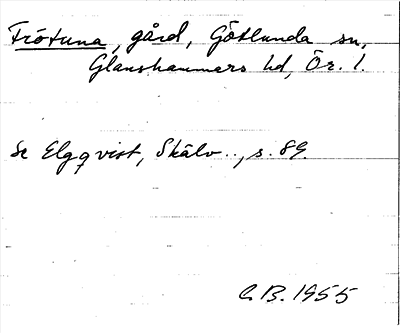 Frötuna, gård, Götlunda sn,
Glanshammars hd, Ör. l.
Se Elgqvist, Skälv.., s. 89.
C.B. 1955